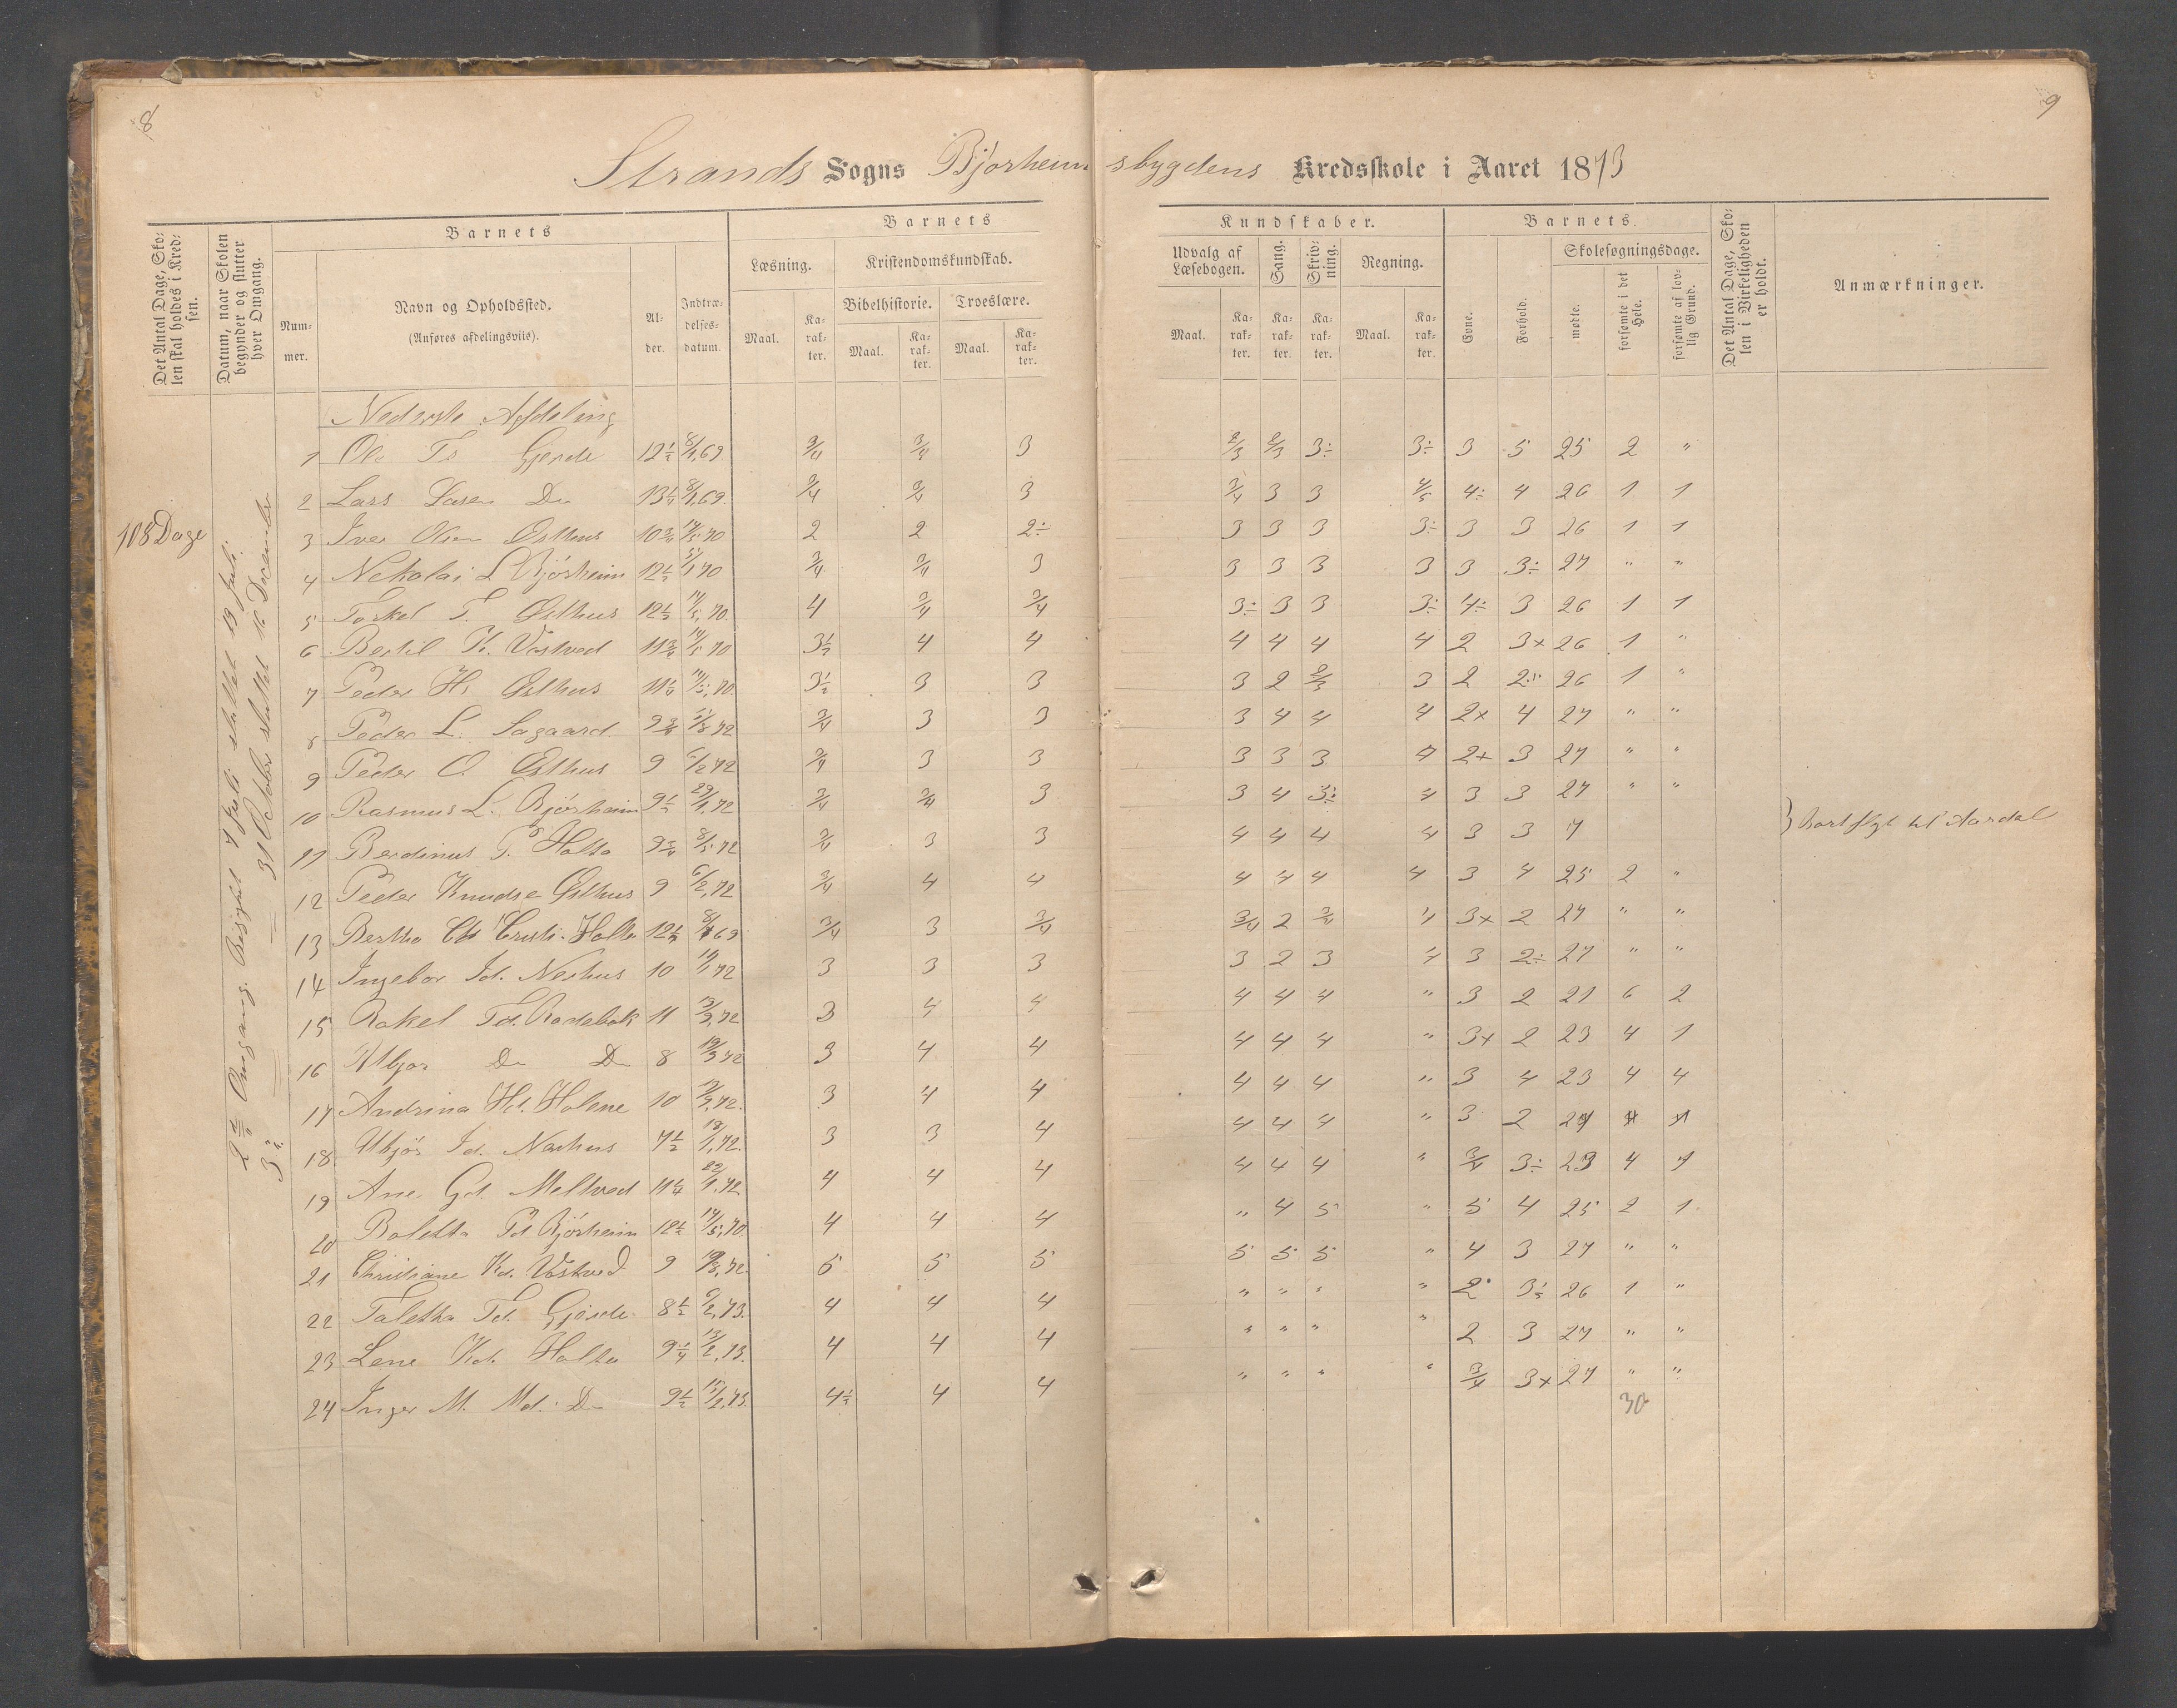 8
9
Strands Sogns Bjørheimsbygdens Kredsskole i Aaret 1873
Det Antal Dage, Skolen skal holdes i Kredsen.
Datum, naar Skolen begynder og slutter hver Omgang.
Barnets
Nummer.
Navn og Opholdssted.
(Anføres afdelingsviis).
Alder.
Indtrædelsesdatum.
Barnets Kundskaber.
Læsning.
Maal. Karakter.
Kristendomskundskab.
Bibelhistorie. Troeslære.
Maal. Karakter. Maal. Karakter.
Udvalg af Læsebogen.
Maal. Karakter.
Sang.
Karakter.
Skrivning.
Karakter.
Regning.
Maal. Karakter.
Barnets
Evne.
Forhold.
Skolesøgningsdage.
mødte.
forsømte i det Hele.
forsømte af lovlig Grund.
Det Antal Dage, Skolen i Virkeligheden er holdt.
Anmærkninger.
108 Dage
2den Omgang. 7 Juli sluttet 19 Juli.
3 31 October sluttet 16 December
Nederste Afdeling
1 Ole Ts Gjerde 12½ 8/1,69 3/4 3/4 3 2/3 2/3 3÷ 3÷ 3 5 25 2 "
2 Lars Larsen Do 13¼ 8/1,69 3/4 3/4 3 3/4 3 3 4/5 4÷ 4 26 1 1
3 Iver Olsen Østhus 10¾ 14/5,70 2 2 2÷ 3 3 3 3÷ 3 3 26 1 1
4 Nekolai L Bjørheim 12½ 5/1 70 3/4 3/4 3 3 3 3 3 3 3÷ 27 " "
5 Torkel T. Østhus 12½ 14/5,70. 4 3/4 3/4 3÷ 3 3 3÷ 4÷ 3 26 1 1
6 Bertil K. Vostved 11¾ 14/5 70 3½ 4 4 4 4 4 4 2 3x 26 1 "
7 Peder Hs Østhus 11¼ 14/5,70. 3½ 3 3 3 2 2/3 3 2 2÷ 26 1 "
8 Peder L. Sagaard 3/4 3 3 3 4 4 4 2x 4 27 " "
9 Peder O. Østhus 9 6/2 72 3/4 3 3 3 3 3 4 2x 3 27 " "
10 Rasmus L. Bjørheim 9½ 29/1,72 3/4 3/4 3 3 4 3÷ 4 3 3 27 " "
11 Berdinus T. Holta 3/4 3 3 4 4 4 4 3 3 7 Bortflyt til Aardal
12 Peder Knudse Østhus 9 6/2,72 3/4 4 4 4 4 4 4 3 4 25 2 "
13 Bertha 12½ 3/4 3 3/4 3/4 2 3/4 4 3x 2 27 " "
14 Ingebor Id. Neshus 10 3 3 3 3 2 3 4 3 2÷ 27 " "
15 Rakel Td. Rodebak 11 3 4 4 4 4 4 " 3 2 21 6 2
16 Do Do 8 3 4 4 4 4 4 " 3x 2 23 4 1
17 Andrina Hd. Holene 10 3 4 4 4 4 4 " 3 4 23 4 4
18 Id. Neshus 7½ 3 3 4 4 4 4 " 3 2
19 Ane Gd. Meltved 11¼ 22/1,72 4 4 4 4 4 4 " 3/4 3÷ 23 4
20 Boletta Pd Bjørheim 12½ 14/5,70. 4 4 4 " 4 5 " 5 4 25 2 1
21 Christiane Kd. Vostved 9 5 5 5 5 5 5 " 4 3 27 " "
22 Taletta Td. Gjerde 8½ 4 4 4 " " " " 2 26 1 "
23 Lene Kd. Holta 9¼ 4 4 4 " " " " 2 3 27 " "
24 Inger M. Md. Do 9½ 4½ 4 4 " " " " 3/4 3x 27 " "
30